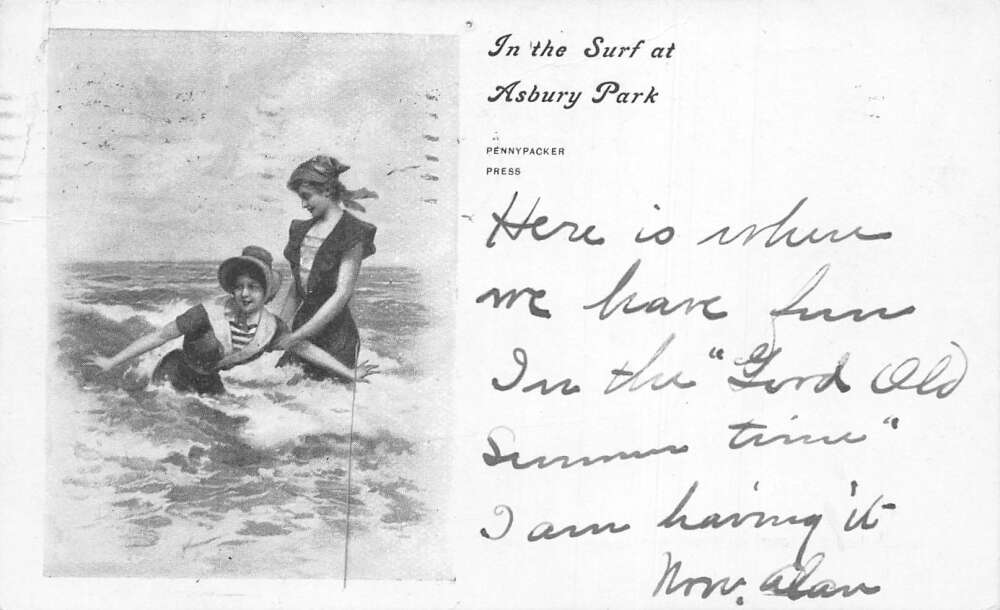 In the Surf at
Asbury Park
PENNYPACKER
PRESS
Here is where
we have fun
In the "Good Old
Summer time"
I am having it
Now. Alan